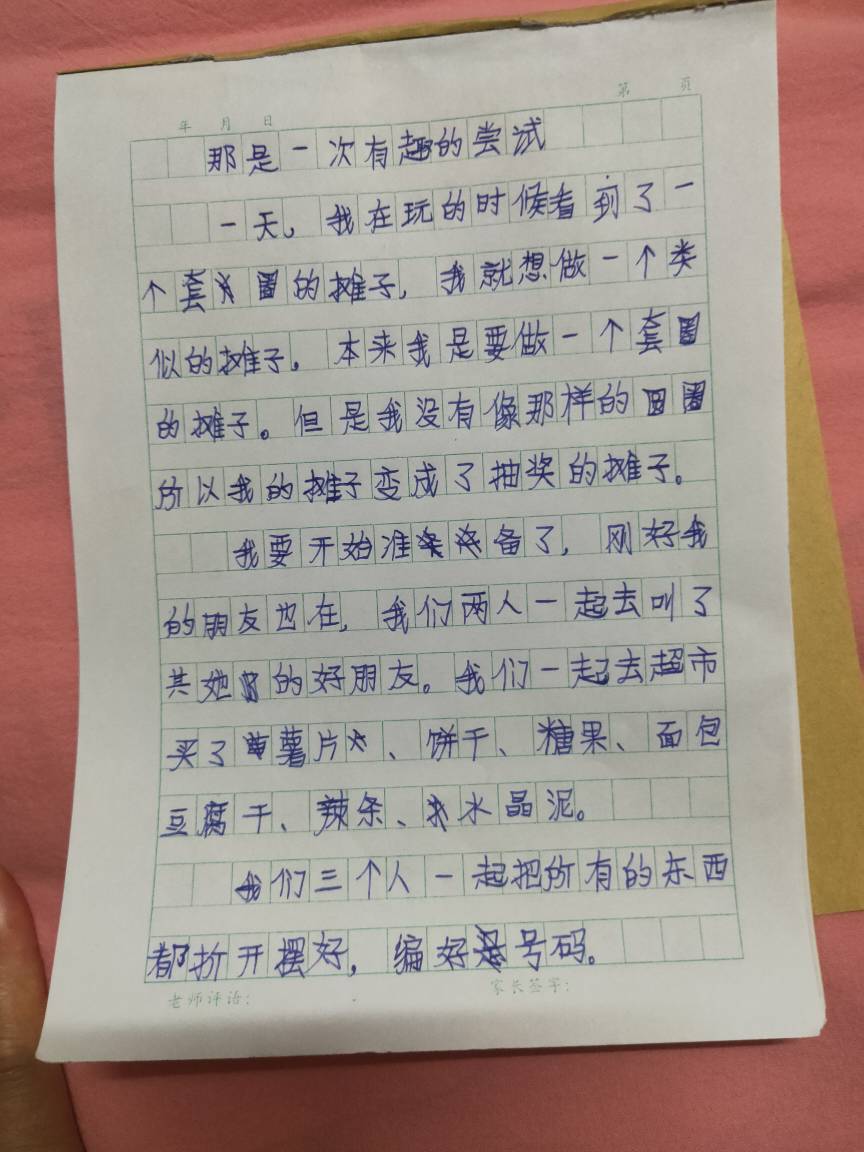 年 月 日
第 页
那是一次有趣的尝试
一天。我在玩的时候看到了一
个套圈的摊子，我就想做一个类
似的摊子。本来我是要做一个套圈
的摊子。但是我没有像那样的圈
所以我的摊子变成了抽奖的摊子。
我要开始准备了，刚好我
的朋友也在，我们两人一起去叫了
共她的好朋友。我们一起去超市
买了薯片、饼干、糖果、面包
豆腐干、辣条、水晶泥。
我们三个人一起把所有的东西
都折开摆好，编好号码。
老师评语：
家长签字：